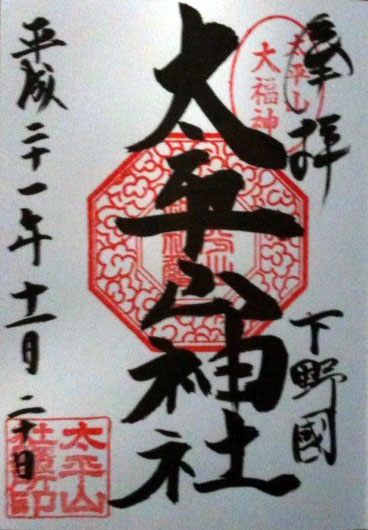 奉拝
太平山
大福神
下野國
太平山神社
平成二十一年十一月二十日
太平山
社務所印